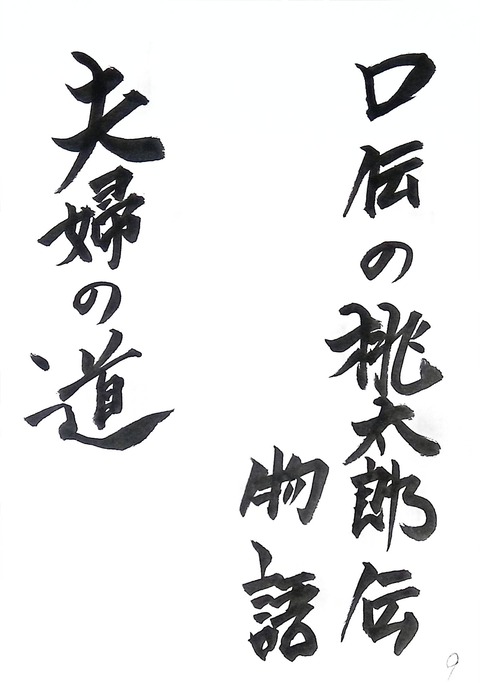 口伝の桃太郎伝
物語
夫婦の道
9